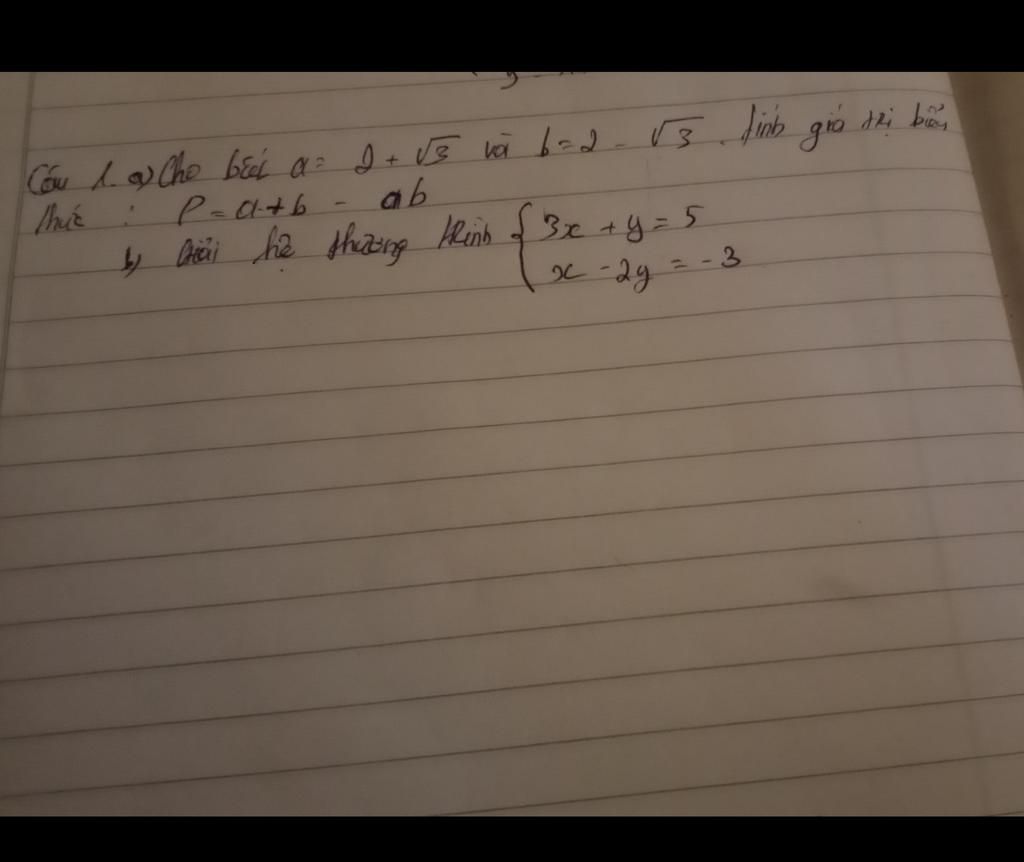 Câu 1. a) Cho biết a = 2 + √3 và b = 2 - √3. Tính giá trị biểu
thức : P = a + b - ab
b) Giải hệ phương trình { 3x + y = 5
x - 2y = -3